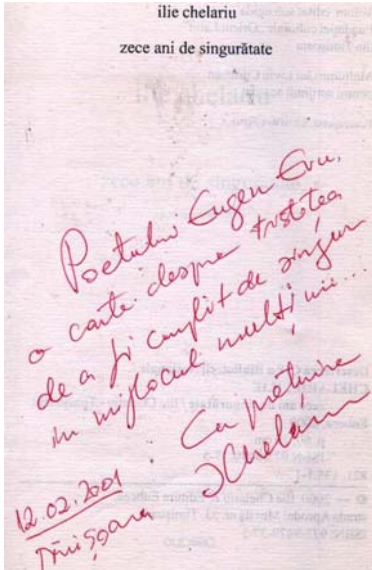 ilie chelariu
zece ani de singurătate
Poetului Eugen Evu,
o carte despre tristețea
de a fi cumplit de singur
în mijlocul mulțimii...
Cu prețuire
IChelariu
12.02.2001
Timișoara